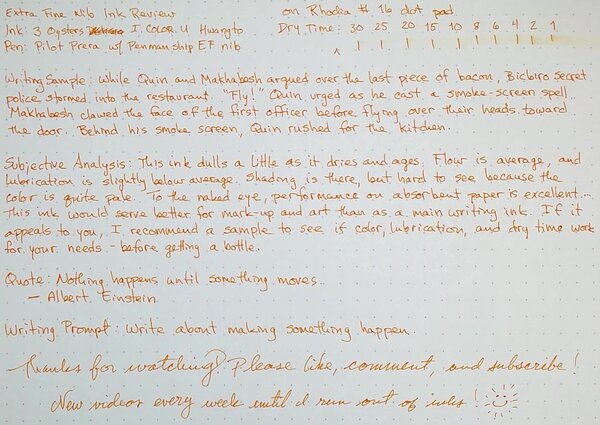 Extra Fine Nib Ink Review on Rhodia # 16 dot pad
Ink: 3 Oysters I. COLOR. U Hwangto Dry Time: 30 25 20 15 10 8 6 4 2 1
Pen: Pilot Prera w/ Penmanship EF nib
Writing Sample: While Quin and Makhabesh argued over the last piece of bacon, Bicbiro secret
police stormed into the restaurant. "Fly!" Quin urged as he cast a smoke-screen spell.
Makhabesh clawed the face of the first officer before flying over their heads toward
the door. Behind his smoke screen, Quin rushed for the kitchen.
Subjective Analysis: This ink dulls a little as it dries and ages. Flow is average, and
lubrication is slightly below average. Shading is there, but hard to see because the
color is quite pale. To the naked eye, performance on absorbent paper is excellent...
This ink would serve better for mark-up and art than as a main writing ink. If it
appeals to you, I recommend a sample to see if color, lubrication, and dry time work
for your needs - before getting a bottle.
Quote: Nothing happens until something moves.
- Albert Einstein
Writing Prompt: Write about making something happen.
Thanks for watching! Please like, comment, and subscribe!
New videos every week until I run out of inks!